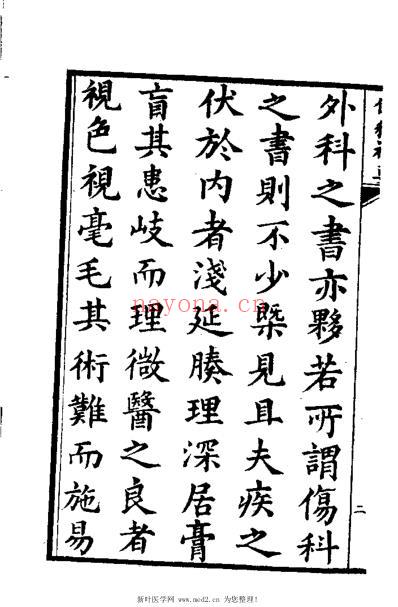 外科之書亦夥若所謂傷科
之書則不少槩見且夫疾之
伏於内者淺延腠理深居膏
肓其患岐而理微醫之良者
視色視毫毛其術難而施易
二
nayona.cn
新叶医学网 www.med2.cn 为您整理!